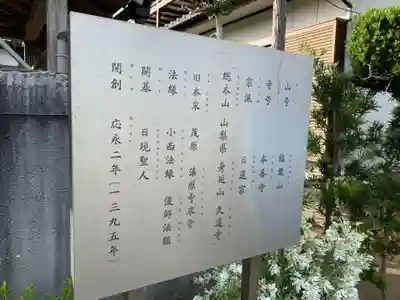 山号
寺号 本善寺
宗派 日蓮宗
総本山 山梨県 身延山 久遠寺
旧本末 茂原 藻原寺末寺
法縁 小西法縁 俊師法縁
開基 日現聖人
開創 応永二年(一三九五年)